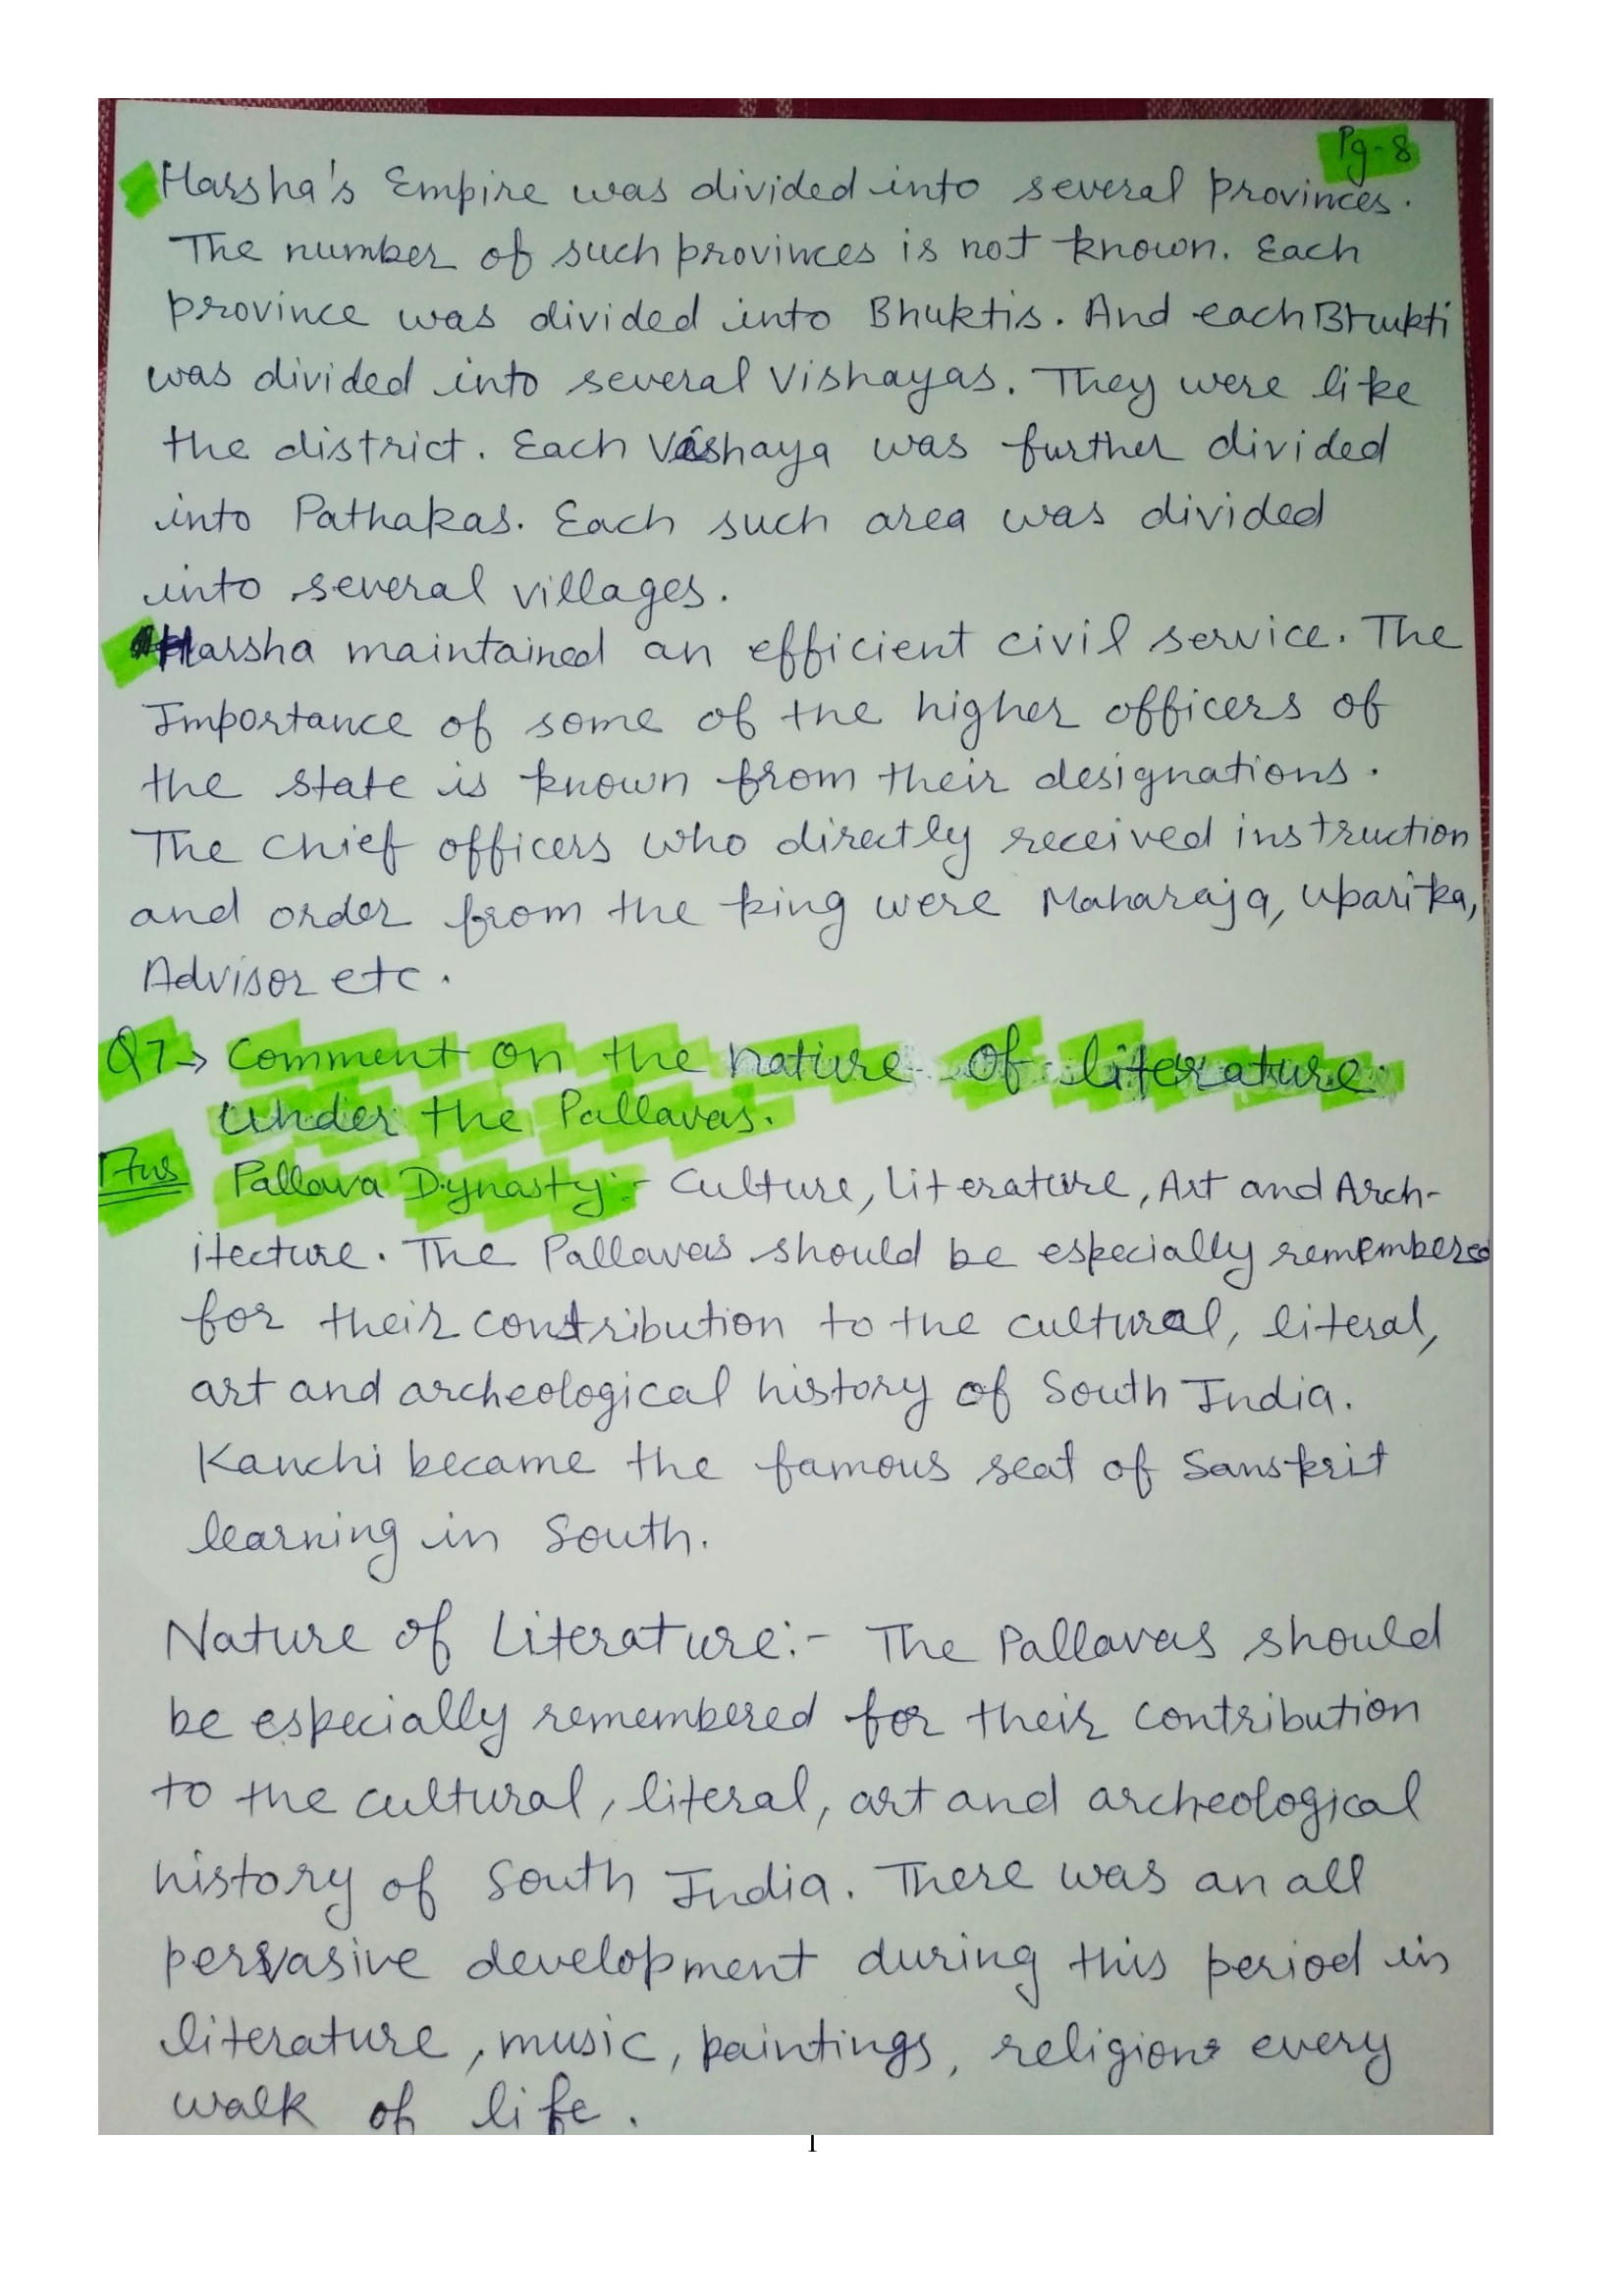 Pg-8
Harsha's Empire was divided into several provinces.
The number of such provinces is not known. Each
province was divided into Bhuktis. And each Bhukti
was divided into several Vishayas. They were like
the district. Each Vishaya was further divided
into Pathakas. Each such area was divided
into several villages.
Harsha maintained an efficient civil service. The
Importance of some of the higher officers of
the state is known from their designations.
The Chief officers who directly received instruction
and order from the king were Maharaja, Uparika,
Advisor etc.
Q7→ Comment on the nature of literature
under the Pallavas.
Ans Pallava Dynasty:- Culture, Literature, Art and Arch-
itecture. The Pallavas should be especially remembered
for their contribution to the cultural, literal,
art and archeological history of South India.
Kanchi became the famous seat of Sanskrit
learning in South.
Nature of Literature:- The Pallavas should
be especially remembered for their contribution
to the cultural, literal, art and archeological
history of South India. There was an all
pervasive development during this period in
literature, music, paintings, religion every
walk of life.
1